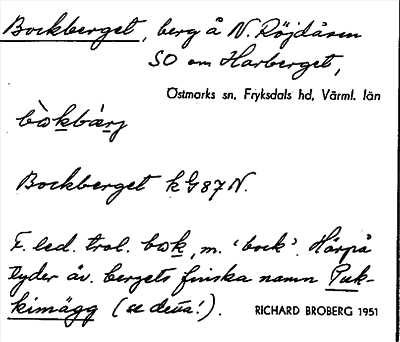 Bockberget, berg å N. Röjdåsen
SO om Harberget,
Östmarks sn, Fryksdals hd, Värml. län
bωkbærj
Bockberget kG87N.
F. led. trol. bωk, m. 'bock'. Härpå
tyder äv. bergets finska namn Puk-
kimägg (se detta!).
RICHARD BROBERG 1951